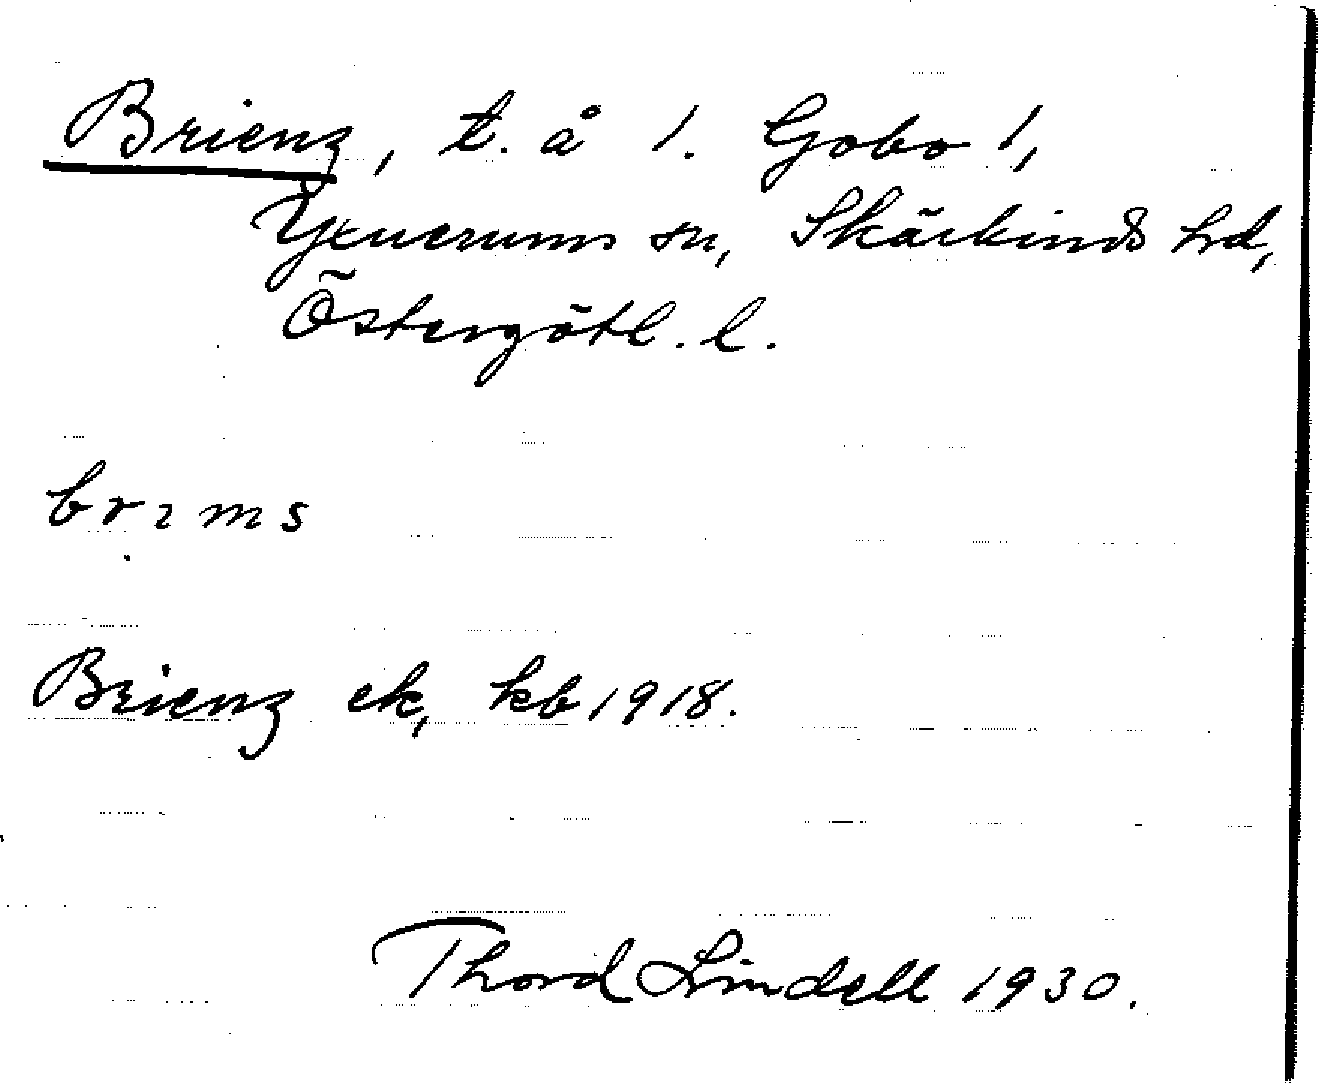 Brienz, t. å 1. Gobo 1,
Yxnerums sn, Skärkinds hd,
Östergötl. l.
brıms
Brienz ek, kb 1918.
Thord Lindell 1930.